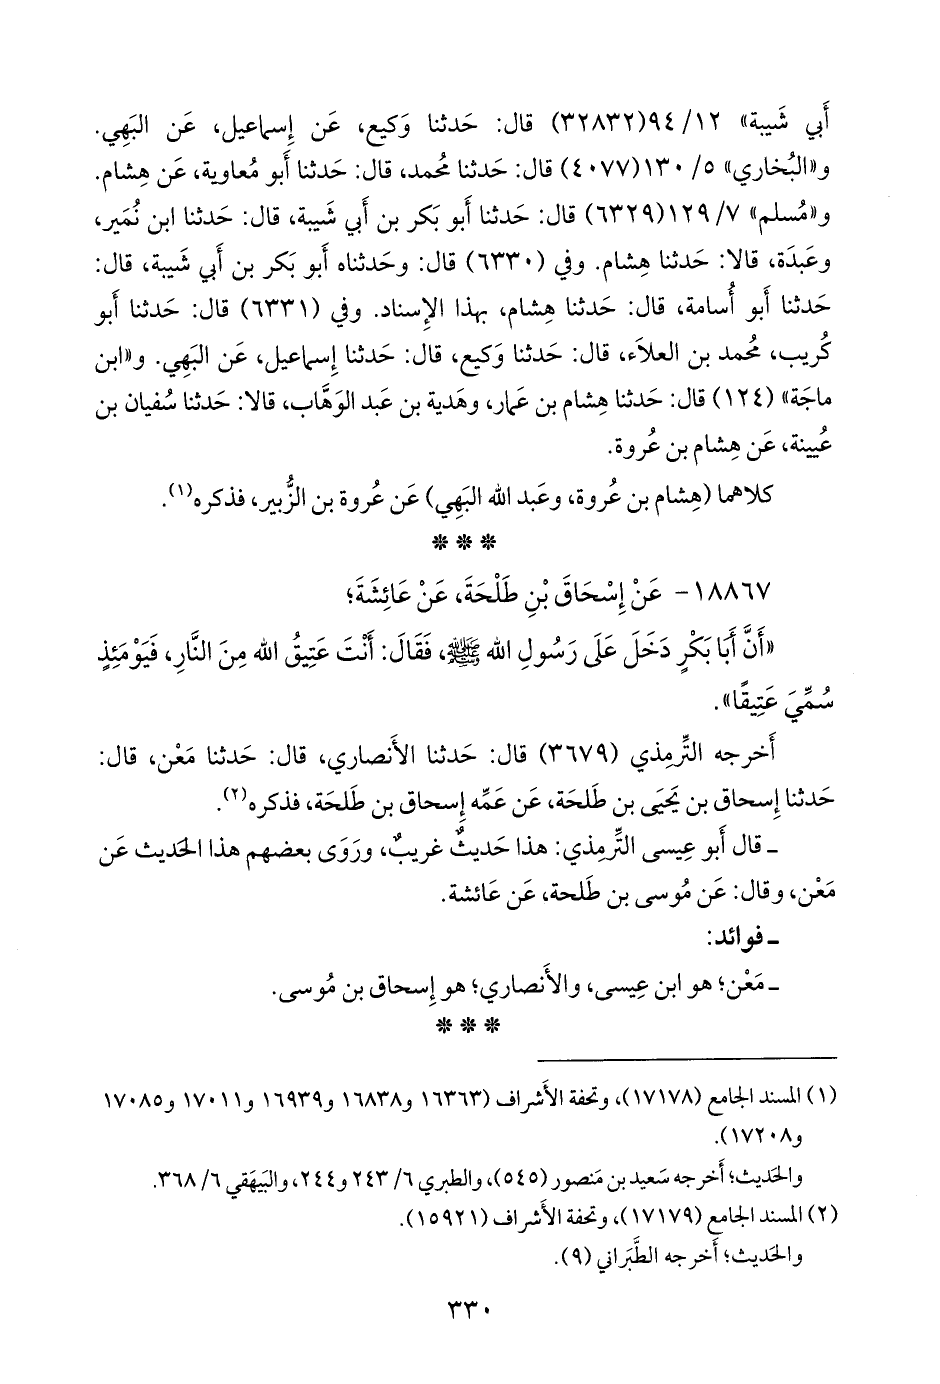 أَبي شَيبة» ١٢/ ٩٤(٣٢٨٣٢) قال: حَدثنا وَكيع، عَن إِسماعيل، عَن البَهِي.
و«البُخاري» ٥/ ١٣٠(٤٠٧٧) قال: حَدثنا مُحمد، قال: حَدثنا أَبو مُعاوية، عَن هِشام.
و«مُسلم» ٧/ ١٢٩(٦٣٢٩) قال: حَدثنا أَبو بَكر بن أَبي شَيبة، قال: حَدثنا ابن نُمَير،
وعَبدَة، قالا: حَدثنا هِشام. وفي (٦٣٣٠) قال: وحَدثناه أَبو بَكر بن أَبي شَيبة، قال:
حَدثنا أَبو أُسامة، قال: حَدثنا هِشام، بهذا الإِسناد. وفي (٦٣٣١) قال: حَدثنا أَبو
كُريب، مُحمد بن العلاَء، قال: حَدثنا وَكيع، قال: حَدثنا إِسماعيل، عَن البَهِي. و«ابن
ماجَة» (١٢٤) قال: حَدثنا هِشام بن عمار، وهَدية بن عَبد الوَهَّاب، قالا: حَدثنا سُفيان بن
عُيينة، عَن هِشام بن عُروة.
كلاهما (هِشام بن عُروة، وعَبد الله البَهِي) عَن عُروة بن الزُّبير، فذكره(١).
* * *
١٨٨٦٧- عَنْ إِسْحَاقَ بْنِ طَلْحَةَ، عَنْ عَائِشَةَ؛
«أَنَّ أَبَا بَكْرٍ دَخَلَ عَلَى رَسُولِ الله ﷺ، فَقَالَ: أَنْتَ عَتِيقُ الله مِنَ النَّارِ، فَيَوْمَئِذٍ
سُمِّيَ عَتِيقًا».
أَخرجه التِّرمِذي (٣٦٧٩) قال: حَدثنا الأَنصاري، قال: حَدثنا مَعْن، قال:
حَدثنا إِسحاق بن يَحيَى بن طَلحَة، عَن عَمِّه إِسحاق بن طَلحَة، فذكره(٢).
ـ قال أَبو عِيسى التِّرمِذي: هذا حَديثٌ غريبٌ، ورَوَى بعضهم هذا الحَديث عَن
مَعْن، وقال: عَن مُوسى بن طَلحة، عَن عَائشة.
ـ فوائد:
ـ مَعْن؛ هو ابن عِيسى، والأَنصاري؛ هو إِسحاق بن مُوسى.
* * *
(١) المسند الجامع (١٧١٧٨)، وتحفة الأَشراف (١٦٣٦٣ و١٦٨٣٨ و١٦٩٣٩ و١٧٠١١ و١٧٠٨٥
و١٧٢٠٨).
والحَديث؛ أَخرجه سَعيد بن مَنصور (٥٤٥)، والطبري ٦/ ٢٤٣ و٢٤٤، والبَيهَقي ٦/ ٣٦٨.
(٢) المسند الجامع (١٧١٧٩)، وتحفة الأَشراف (١٥٩٢١).
والحَديث؛ أَخرجه الطَّبَراني (٩).
٣٣٠